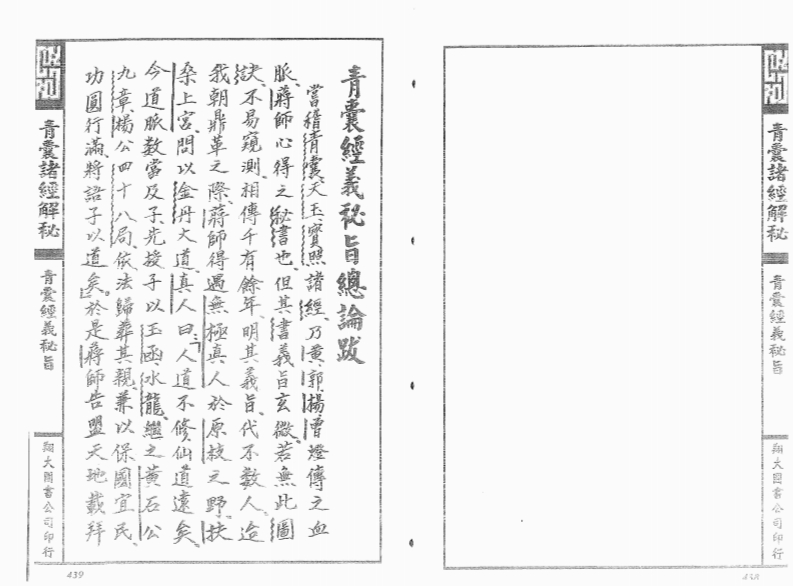 青囊諸經解秘
青囊經義秘旨
翔大圖書公司印行
青囊經義秘旨總論跋
嘗稽青囊、天玉、寶照諸經、乃黃、郭、楊、曾燈傳之血
脈、蔣師心得之秘書也、但其書義旨玄微、若無此圖
訣、不易窺測、相傳千有餘年、明其義旨、代不數人。迨
我朝鼎革之際、蔣師得遇無極真人於原枝之野、扶
桑上宮、問以金丹大道、真人曰、「人道不修仙道遠矣。
今道脈數當及子、先授子以玉函水龍、繼之黃石公
九章、楊公四十八局、依法歸葬其親、兼以保國宜民、
功圓行滿、將語子以道矣。」於是蔣師告盟天地載拜
青囊諸經解秘
青囊經義秘旨
翔大圖書公司印行
439